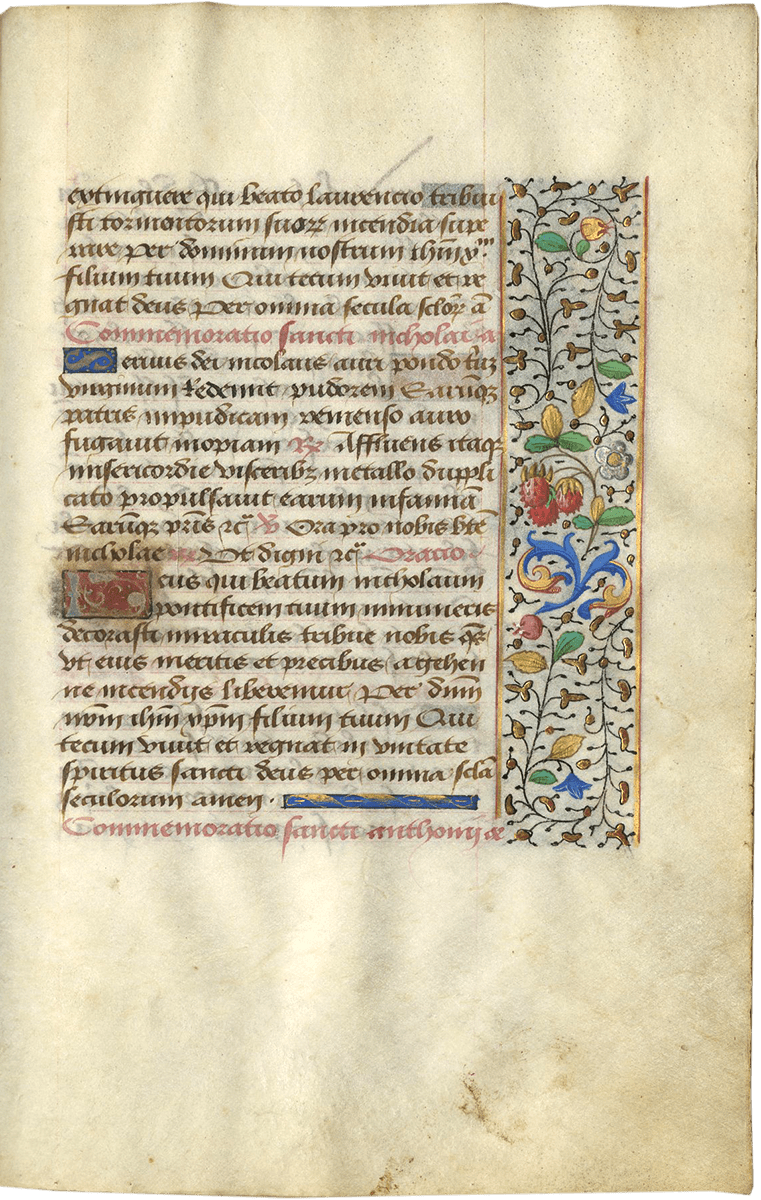 extinguere qui beato laurencio tribui
sti tormentorum suoꝝ incendia supe
rare Per dominum nostrum ihm̄ xp̄m
filium tuum Qui tecum viuit et re
gnat deus Per omnia secula sclor̄ a
Commemoratio sancti nicholai a
Seruus dei nicolaus auri pondo
virginum Redemit pudorem Earūqꝫ
patris impudicam remenso auro
fugauit inopiam R̄ Affluens itaqꝫ
misericordie visceribꝫ metallo duppli
cato propulsauit earum infamiā
Earūqꝫ prīs rc̄ v̄ Ora pro nobis bt̄e
nicholae Vt digni rc̄ Oracio
Deus qui beatum nicholaum
pontificem tuum innumeris
decorasti miraculis tribue nobis qs̄
vt eius meritis et precibus a gehen
ne incendijs liberemur Per dn̄m
nr̄m ihm̄ xp̄m filium tuum Qui
tecum viuit et regnat in vnitate
spiritus sancti deus per omnia sclā
seculorum amen .
Commemoratio sancti anthonij